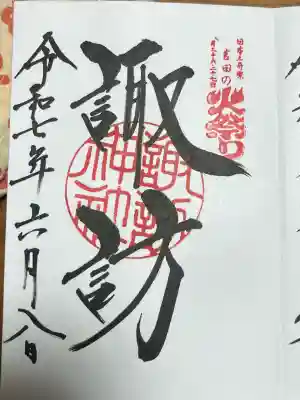 日本三奇祭
吉田の
火祭り
八月二十六・二十七日
諏訪
諏訪
神社
令和七年六月八日